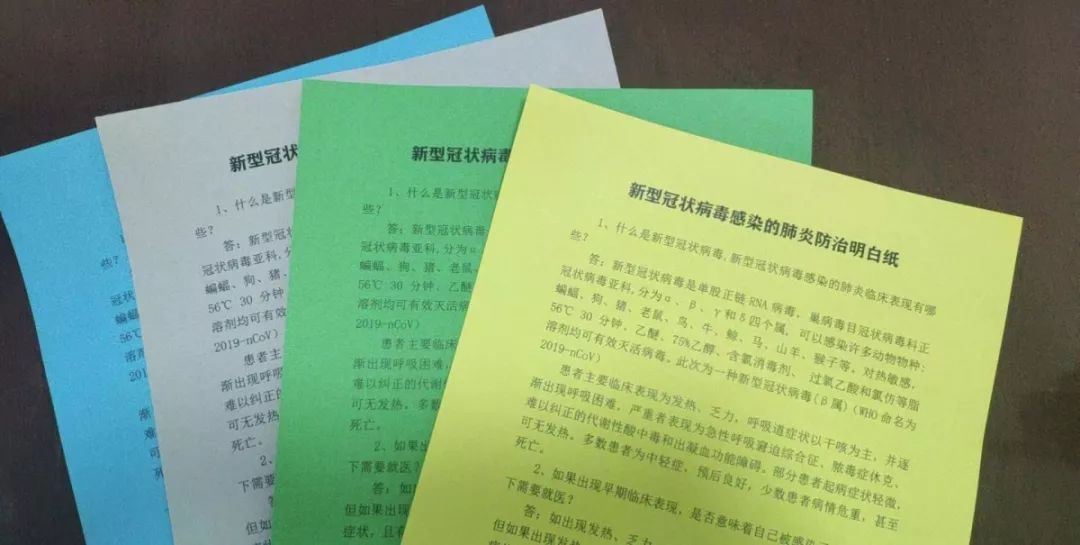 些？
冠状
蝙蝠
56℃
溶剂
201
渐
难以
可无
死亡
新型冠状
1、什么是新型
些？
答：新型冠
冠状病毒亚科,
蝙蝠、狗、猪、
56℃ 30 分钟
溶剂均可有效
2019-nCoV）
患者主
渐出现呼吸
难以纠正的
可无发热。
死亡。
2、
下需要就
答
但如果出
症状
新型冠状病毒
1、什么是新型
些？
答：新型冠状病毒
冠状病毒亚科,分为α、
蝙蝠、狗、猪、老鼠、
56℃ 30 分钟、乙醚、
溶剂均可有效灭活病
2019-nCoV）
患者主要临床
渐出现呼吸困难，
难以纠正的代谢性
可无发热。多数
死亡。
2、如果出现
下需要就医？
答：如出
但如果出现
症状，且有
新型冠状病毒感染的肺炎防治明白纸
1、什么是新型冠状病毒,新型冠状病毒感染的肺炎临床表现有哪
些？
答：新型冠状病毒是单股正链RNA病毒，巢病毒目冠状病毒科正
冠状病毒亚科,分为α、β、γ和δ四个属，可以感染许多动物物种：
蝙蝠、狗、猪、老鼠、鸟、牛、鲸、马、山羊、猴子等，对热敏感，
56℃ 30 分钟、乙醚、75%乙醇、含氯消毒剂、过氧乙酸和氯仿等脂
溶剂均可有效灭活病毒。此次为一种新型冠状病毒(β属)(WHO命名为
2019-nCoV）
患者主要临床表现为发热、乏力，呼吸道症状以干咳为主，并逐
渐出现呼吸困难，严重者表现为急性呼吸窘迫综合征、脓毒症休克、
难以纠正的代谢性酸中毒和出凝血功能障碍。部分患者起病症状轻微，
可无发热。多数患者为中轻症，预后良好，少数患者病情危重，甚至
死亡。
2、如果出现早期临床表现，是否意味着自己被感染
下需要就医？
答：如出现发热、乏力、
但如果出现